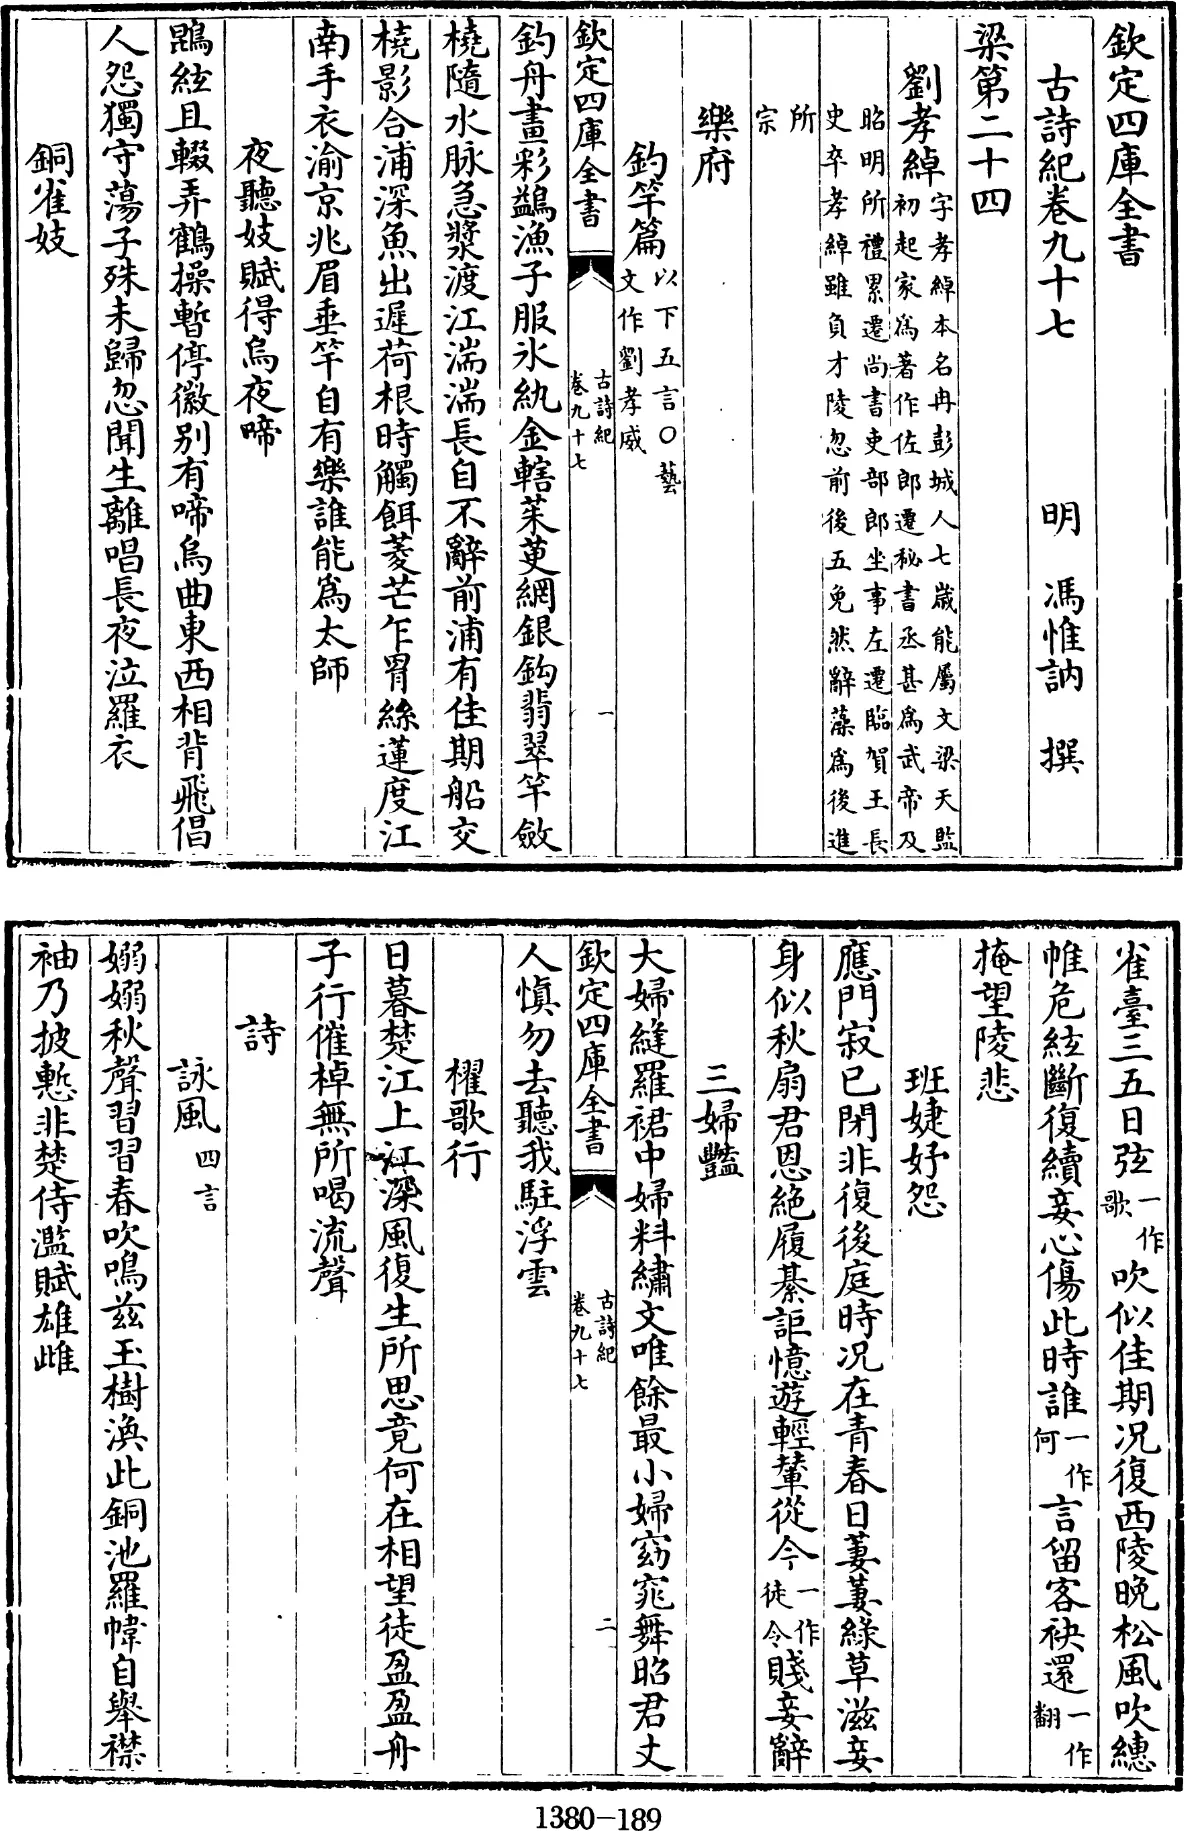 欽定四庫全書
古詩紀卷九十七　　　　明　馮惟訥　撰
梁第二十四
劉孝綽字孝綽本名冉彭城人七歲能屬文梁天監
初起家爲著作佐郎遷秘書丞甚爲武帝及
昭明所禮累遷尚書吏部郎坐事左遷臨賀王長
史卒孝綽雖負才陵忽前後五免然辭藻爲後進
所
宗
樂府
釣竿篇以下五言○藝
文作劉孝威
欽定四庫全書　古詩紀
卷九十七　一
釣舟畫彩鷁漁子服氷紈金轄茱萸網銀鈎翡翠竿斂
橈隨水脉急槳渡江湍湍長自不辭前浦有佳期船交
橈影合浦深魚出遲荷根時觸餌菱芒乍罥絲蓮度江
南手衣渝京兆眉垂竿自有樂誰能爲太師
夜聽妓賦得烏夜啼
鵾絃且輟弄鶴操暫停徽别有啼烏曲東西相背飛倡
人怨獨守蕩子殊未歸忽聞生離唱長夜泣羅衣
銅雀妓
雀臺三五日弦一作歌吹似佳期况復西陵晚松風吹繐
帷危絃斷復續妾心傷此時誰一作何言留客袂還一作翻
掩望陵悲
班婕妤怨
應門寂已閉非復後庭時况在青春日萋萋緑草滋妾
身似秋扇君恩絶履綦詎憶遊輕輦從今一作徒令賤妾辭
三婦豔
大婦縫羅裙中婦料繡文唯餘最小婦窈窕舞昭君丈
欽定四庫全書　古詩紀
卷九十七　二
人愼勿去聽我駐浮雲
櫂歌行
日暮楚江上江深風復生所思竟何在相望徒盈盈舟
子行催棹無所喝流聲
詩
詠風四言
嫋嫋秋聲習習春吹鳴兹玉樹渙此銅池羅幃自舉襟
袖乃披慙非楚侍濫賦雄雌
1380-189